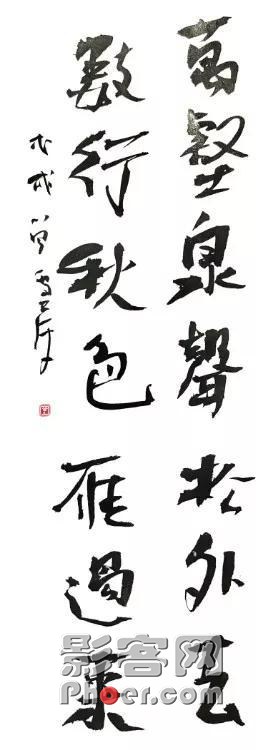 萬壑泉聲松外去
數行秋色雁邊來
戊戌
影客网
Phoer.com